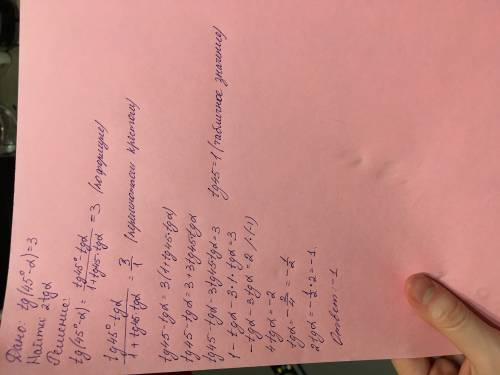 Дано: tg(45°-α)=3
Найти: 2tgα
Решение:
tg(45°-α) = tg45°-tgα / 1+tg45·tgα = 3 (по формуле)
tg45°-tgα / 1+tg45·tgα = 3/1 (перемножаем крестом)
tg45-tgα = 3(1+tg45·tgα)
tg45-tgα = 3+3tg45tgα
tg45-tgα-3tg45tgα=3 tg45=1 (табличное значение)
1-tgα-3·1·tgα=3
-tgα-3tgα=2 /·(-1)
4tgα=-2
tgα=-2/4=-1/2
2tgα=-1/2·2=-1.
Ответ: -1